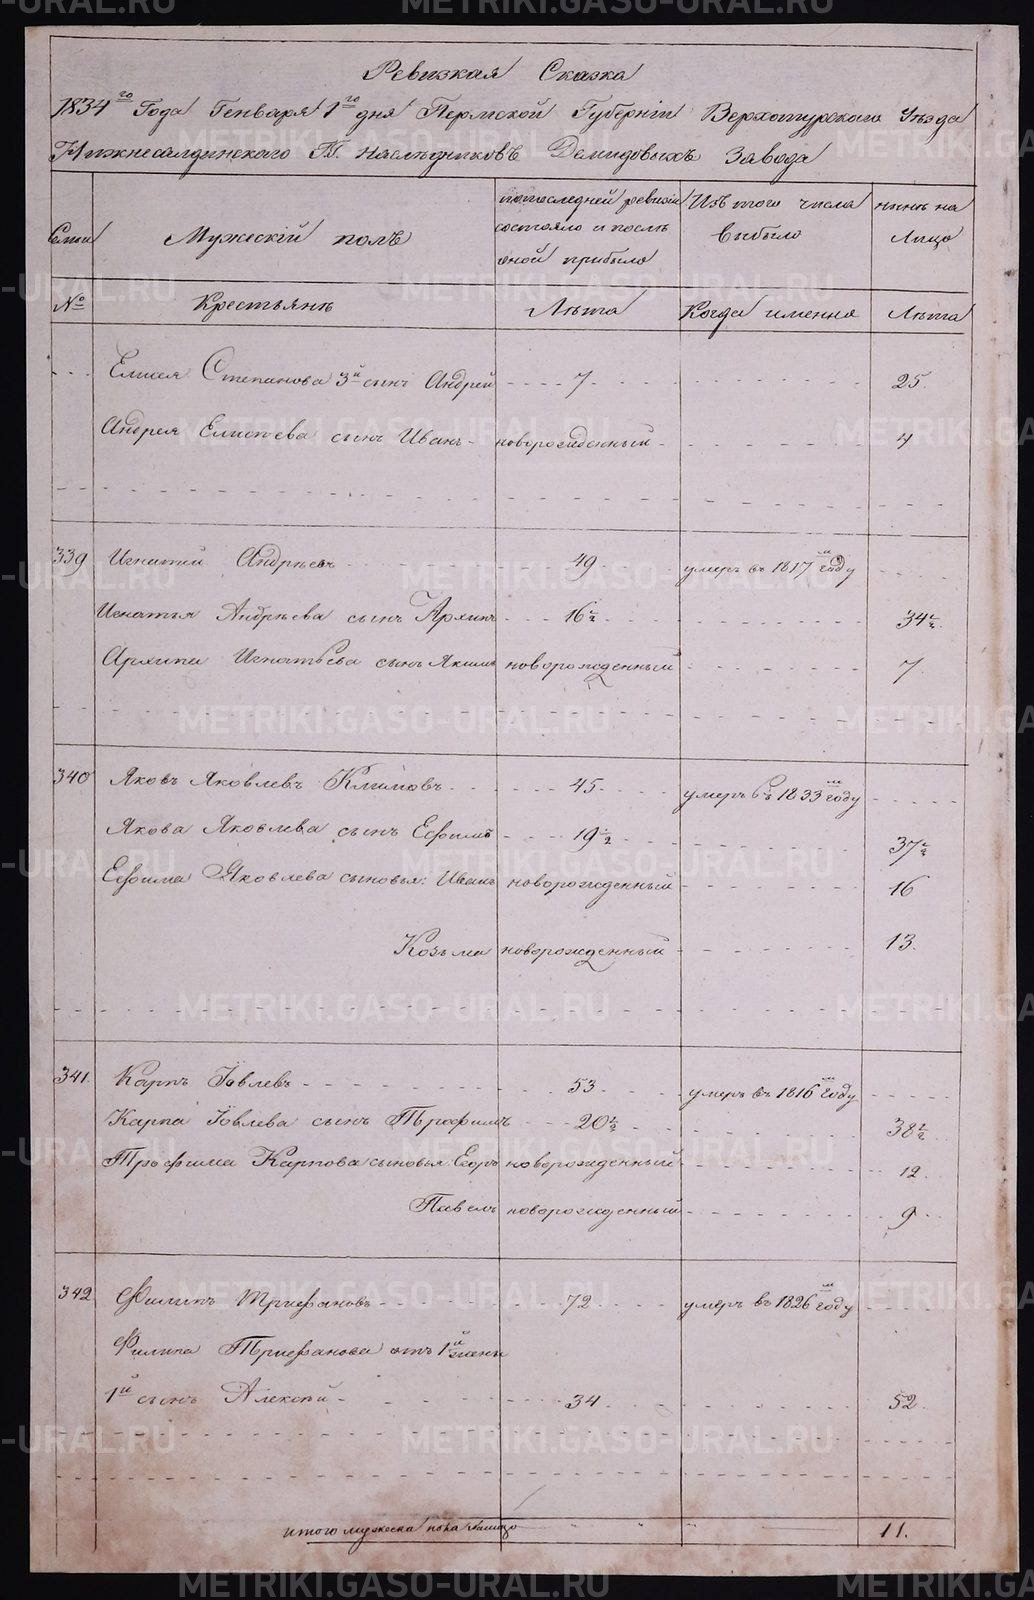 Ревизкая Сказка
1834го Года Генваря 1го дня Пермской Губернiи Верхотурскаго Уѣзда
Нижнесалдинскаго Гг. наслѣдниковъ Демидовыхъ Завода
Семьи
Мужескiй полъ
по последней ревизiи
состояло и послѣ
оной прибыло
Изъ того числа
выбыло
нынѣ на
Лицо
№
Крестьянѣ
Лѣта
Когда именно
Лѣта
Елисея Степанова 3й сынъ Андрей 7 25.
Андрея Елисѣева сынъ Иванъ новорожденный 4
339 Игнатiй Андрѣевъ 49 умеръ въ 1817м году
Игнатья Андрѣева сынъ Архипъ 16½ 34½.
Архипа Игнатьева сынъ Якимъ новорожденный 7
340 Яковъ Яковлевъ Климовъ 45 умеръ въ 1833м году
Якова Яковлева сынъ Ефимъ 19½ 37½
Ефима Яковлева сыновья: Иванъ новорожденный 16
Козьма новорожденный 13.
341. Карпъ Iовлевъ 53 умеръ въ 1816м году
Карпа Iовлева сынъ Трафимъ 20½ 38½
Трафима Карпова сыновья: Егоръ новорожденный 12
Павелъ новорожденный 9
342 Филипъ Трифановъ 72 умеръ въ 1826м году
Филипа Трифанова отъ 1й жены
1й сынъ Алексѣй 34 52
итого мужеска пола налицо 11.
METRIKI.GASO-URAL.RU